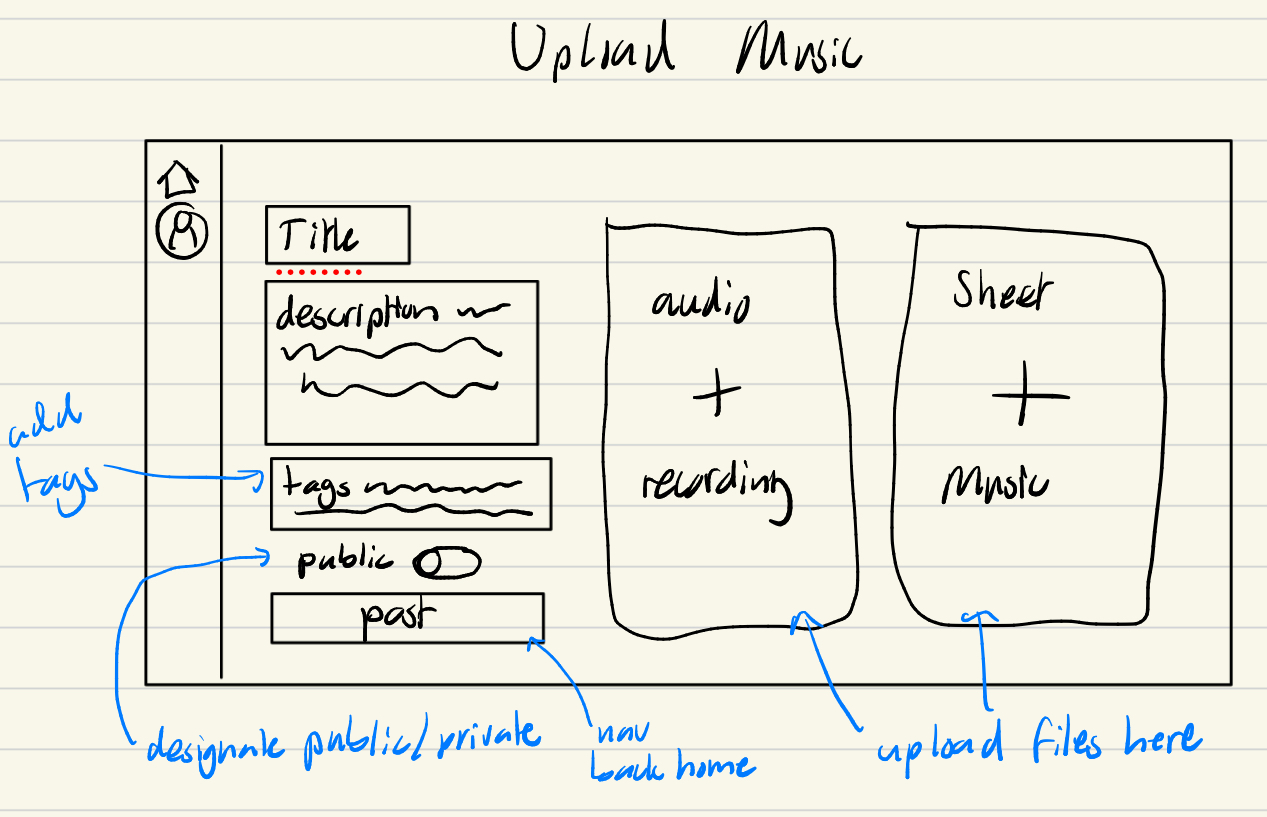 Upload Music
Title
description
tags
public
post
audio
+
recording
Sheet
+
Music
add
tags
designate public/private
nav
back home
upload files here